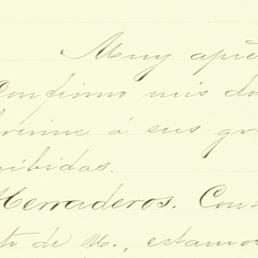 Muy apre
Confirmo mis da
á sus gra
ibidas.
Herraderos. Con
to de M., estamos